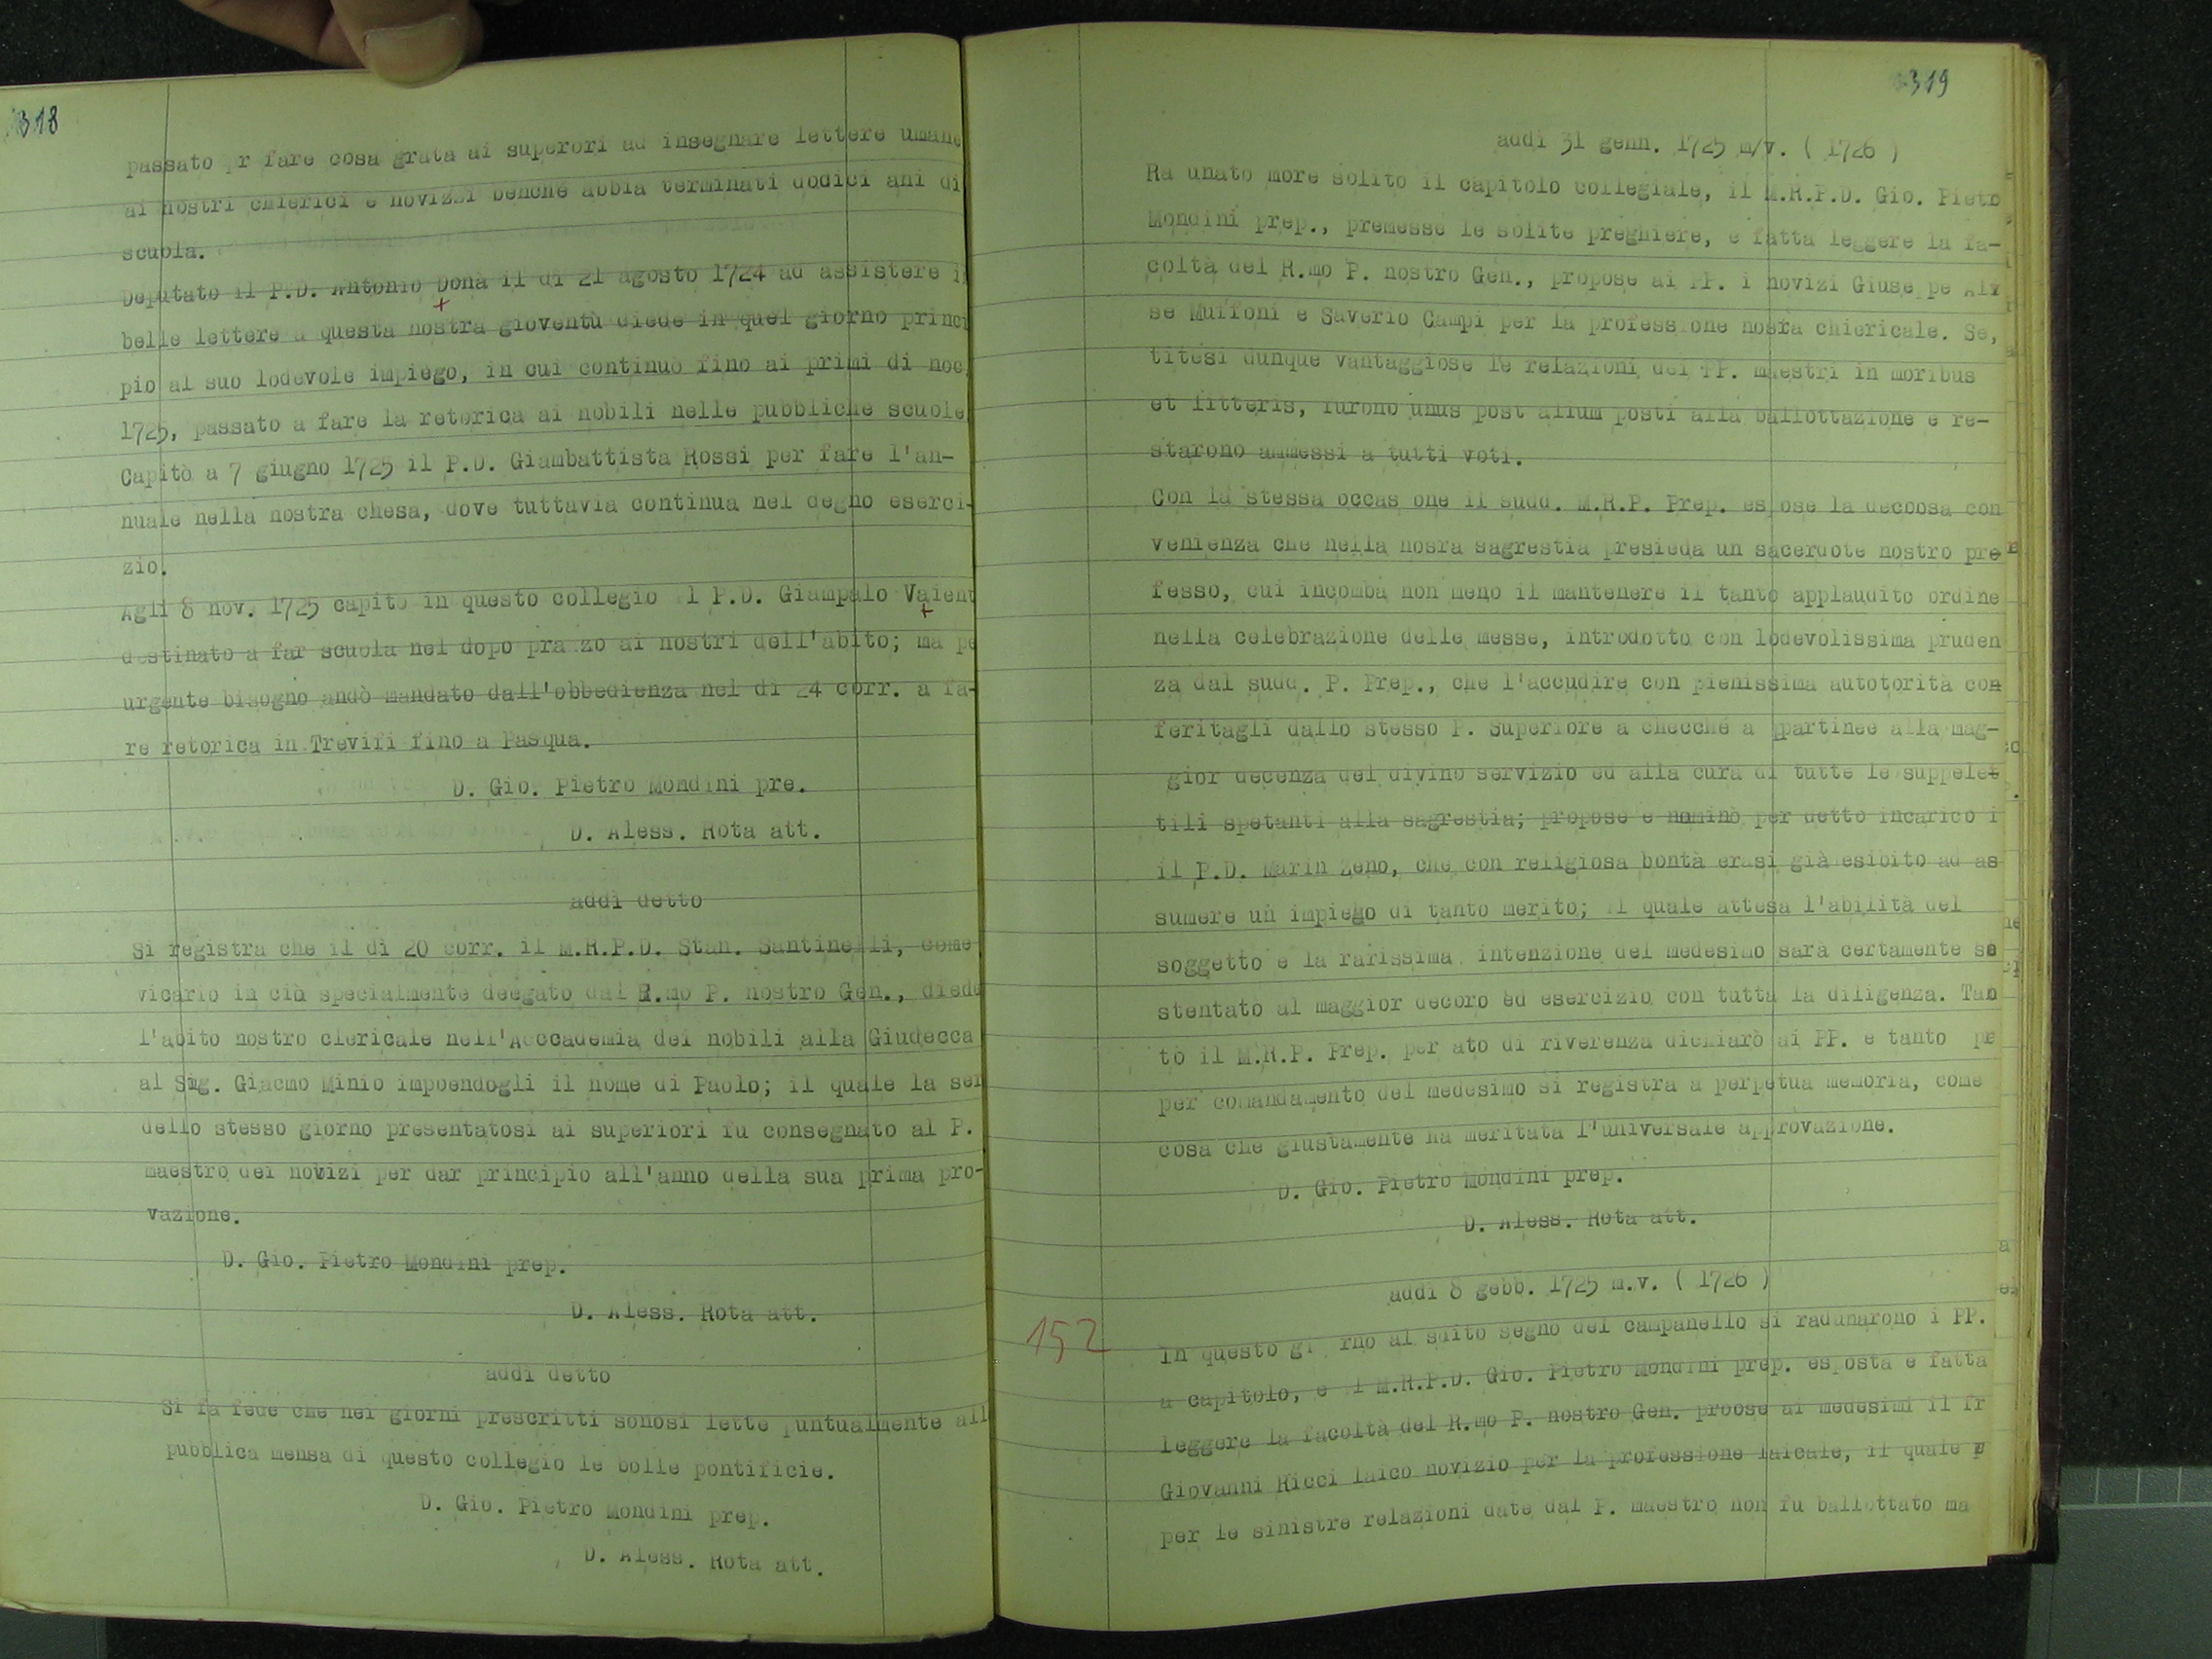 318
passato r fare cosa grata ai superori ad insegnare lettere umane
ai nostri chierici e novizzi benchè abbia terminati dodici ani di
scuola.
Deputato il P.D. Antonio Donà il dì 21 agosto 1724 ad assistere i
belle lettere a questa nostra gioventù diede in quel giorno princi
pio al suo lodevole impiego, in cui continuò fino ai primi di nov.
1725, passato a fare la retorica ai nobili nelle pubbliche scuole
Capitò a 7 giugno 1725 il P.D. Giambattista Rossi per fare l'an-
nuale nella nostra chesa, dove tuttavia continua nel degno eserci-
zio.
Agli 8 nov. 1725 capitò in questo collegio l P.D. Giampalo Vaient
destinato a far scuola nel dopo pranzo ai nostri dell'abito; ma pe
urgente bisogno andò mandato dall'obbedienza nel dì 24 corr. a fa-
re retorica in Trevifi fino a Pasqua.
D. Gio. Pietro Mondini pre.
D. Aless. Rota att.
addì detto
Si registra che il dì 20 corr. il M.R.P.D. Stan. Santinelli, come
vicario in ciò specialmente deegato dal R.mo P. nostro Gen., diede
l'abito nostro clericale nell'Acccademia dei nobili alla Giudecca
al Sig. Giacmo Minio impoendogli il nome di Paolo; il quale la ser
dello stesso giorno presentatosi ai superiori fu consegnato al P.
maestro dei novizi per dar principio all'anno della sua prima pro-
vazione.
D. Gio. Pietro Mondini prep.
D. Aless. Rota att.
addì detto
Si fa fede che nei giorni prescritti sonosi lette puntualmente all
pubblica mensa di questo collegio le bolle pontificie.
D. Gio. Pietro Mondini prep.
D. Aless. Rota att.
319
addì 31 genn. 1725 m/v. ( 1726 )
Ra unato more solito il capitolo collegiale, il M.R.P.D. Gio. Pietro
Mondini prep., premesse le solite preghiere, e fatta leggere la fa-
coltà del R.mo P. nostro Gen., propose ai PP. i novizi Giuse pe Alv
se Muffoni e Saverio Campi per la professione nosra chiericale. Se,
titesi dunque vantaggiose le relazioni dei PP. maestri in moribus
et litteris, furono unus post alium posti alla ballottazione e re-
starono ammessi a tutti voti.
Con la stessa occas one il sudd. M.R.P. Prep. espose la decoosa con
venienza che nella nosra sagrestia presieda un sacerdote nostro pro
fesso, cui incomba non meno il mantenere il tanto applaudito ordine
nella celebrazione delle messe, introdotto con lodevolissima pruden
za dal sudd. P. Prep., che l'accudire con pienissima autotorità con
feritagli dallo stesso P. Superiore a checchè a ppartinee alla mag-
gior decenza del divino servizio ed alla cura di tutte le suppelet
tili spetanti alla sagrestia; propose e nominò per detto incarico i
il P.D. Marin Zeno, che con religiosa bontà erasi già esibito ad as
sumere un impiego di tanto merito; il quale attesa l'abilità del
soggetto e la rarissima intenzione del medesimo sarà certamente so
stentato al maggior decoro ed esercizio con tutta la diligenza. Tan
to il M.R.P. Prep. per ato di riverenza dichiarò ai PP. e tanto pe
per comandamento del medesimo si registra a perpetua memoria, come
cosa che giustamente ha meritata l'universale approvazione.
D. Gio. Pietro Mondini prep.
D. Aless. Rota att.
addì 8 gebb. 1725 m.v. ( 1726 )
152
In questo gi rno al solito segno del campanello si radunarono i PP.
a capitolo, e l M.R.P.D. Gio. Pietro Mondini prep. esposta e fatta
leggere la facoltà del R.mo P. nostro Gen. proose ai medesimi il fr
Giovanni Ricci laico novizio per la professione laicale, il quale p
per le sinistre relazioni date dal P. maestro non fu ballottato ma